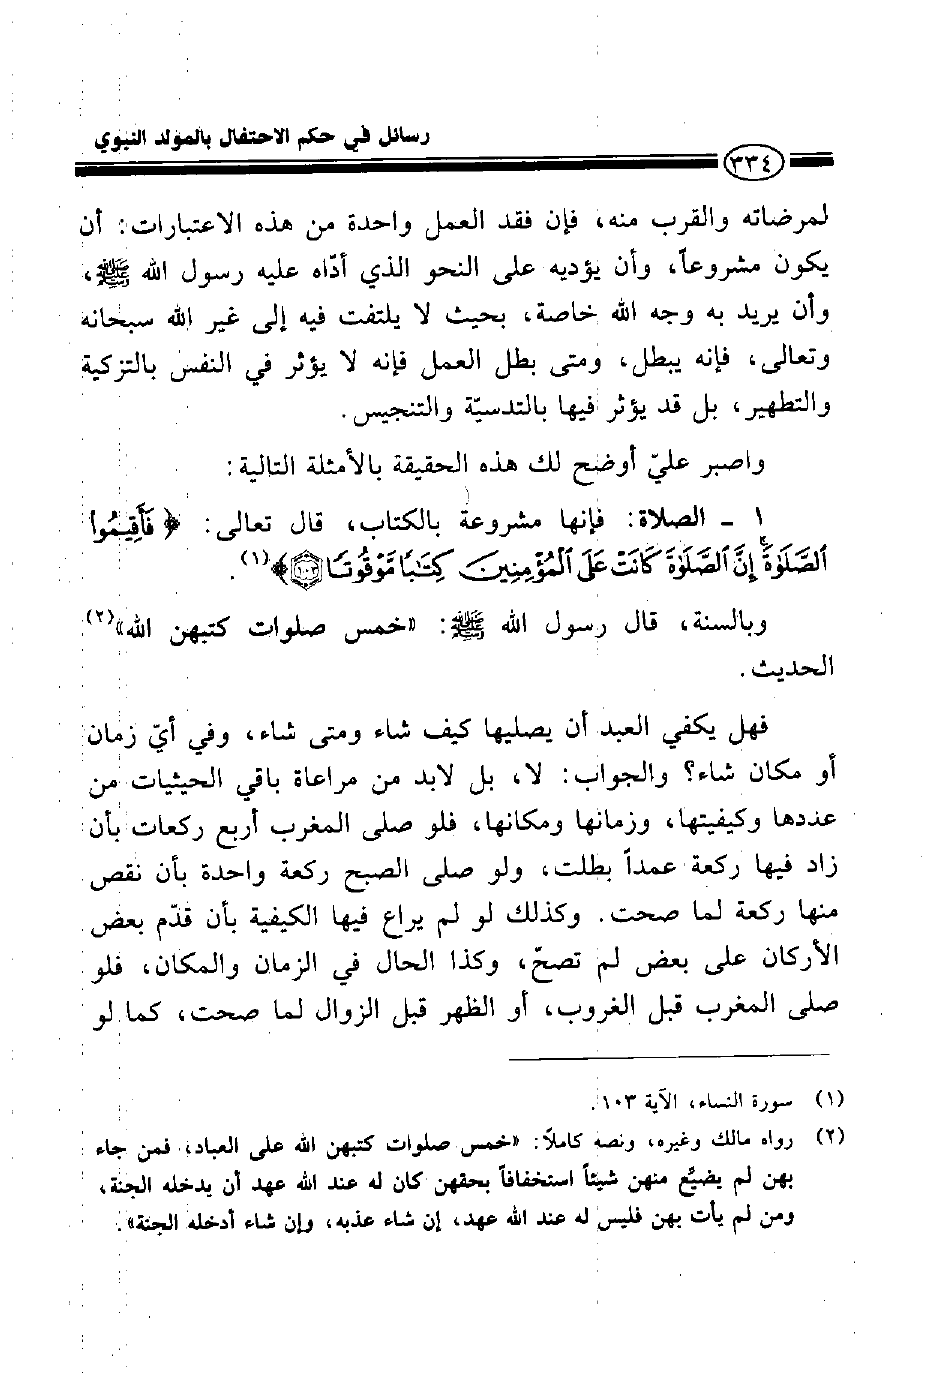 رسائل في حكم الاحتفال بالمولد النبوي
٣٣٤
لمرضاته والقرب منه، فإن فقد العمل واحدة من هذه الاعتبارات: أن
يكون مشروعاً، وأن يؤديه على النحو الذي أدّاه عليه رسول الله ﷺ،
وأن يريد به وجه الله خاصة، بحيث لا يلتفت فيه إلى غير الله سبحانه
وتعالى، فإنه يبطل، ومتى بطل العمل فإنه لا يؤثر في النفس بالتزكية
والتطهير، بل قد يؤثر فيها بالتدسيّة والتنجيس.
واصبر عليّ أوضح لك هذه الحقيقة بالأمثلة التالية:
١ - الصلاة: فإنها مشروعة بالكتاب، قال تعالى: ﴿فَأَقِيمُوا
ٱلصَّلَوٰةَ إِنَّ ٱلصَّلَوٰةَ كَانَتْ عَلَى ٱلْمُؤْمِنِينَ كِتَٰبًا مَّوْقُوتًا ١٠٣﴾(١).
وبالسنة، قال رسول الله ﷺ: «خمس صلوات كتبهن الله»(٢)
الحديث.
فهل يكفي العبد أن يصليها كيف شاء ومتى شاء، وفي أيّ زمان
أو مكان شاء؟ والجواب: لا، بل لابد من مراعاة باقي الحيثيات من
عددها وكيفيتها، وزمانها ومكانها، فلو صلى المغرب أربع ركعات بأن
زاد فيها ركعة عمداً بطلت، ولو صلى الصبح ركعة واحدة بأن نقص
منها ركعة لما صحت. وكذلك لو لم يراع فيها الكيفية بأن قدّم بعض
الأركان على بعض لم تصحّ، وكذا الحال في الزمان والمكان، فلو
صلى المغرب قبل الغروب، أو الظهر قبل الزوال لما صحت، كما لو
(١) سورة النساء، الآية ١٠٣.
(٢) رواه مالك وغيره، ونصه كاملاً: «خمس صلوات كتبهن الله على العباد، فمن جاء
بهن لم يضيّع منهن شيئاً استخفافاً بحقهن كان له عند الله عهد أن يدخله الجنة،
ومن لم يأت بهن فليس له عند الله عهد، إن شاء عذبه، وإن شاء أدخله الجنة».